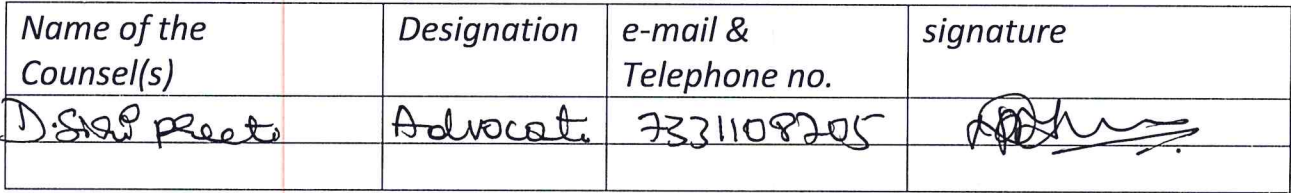 Name of the Counsel(s) Designation e-mail & Telephone no. signature
D. Advocate 7331108205